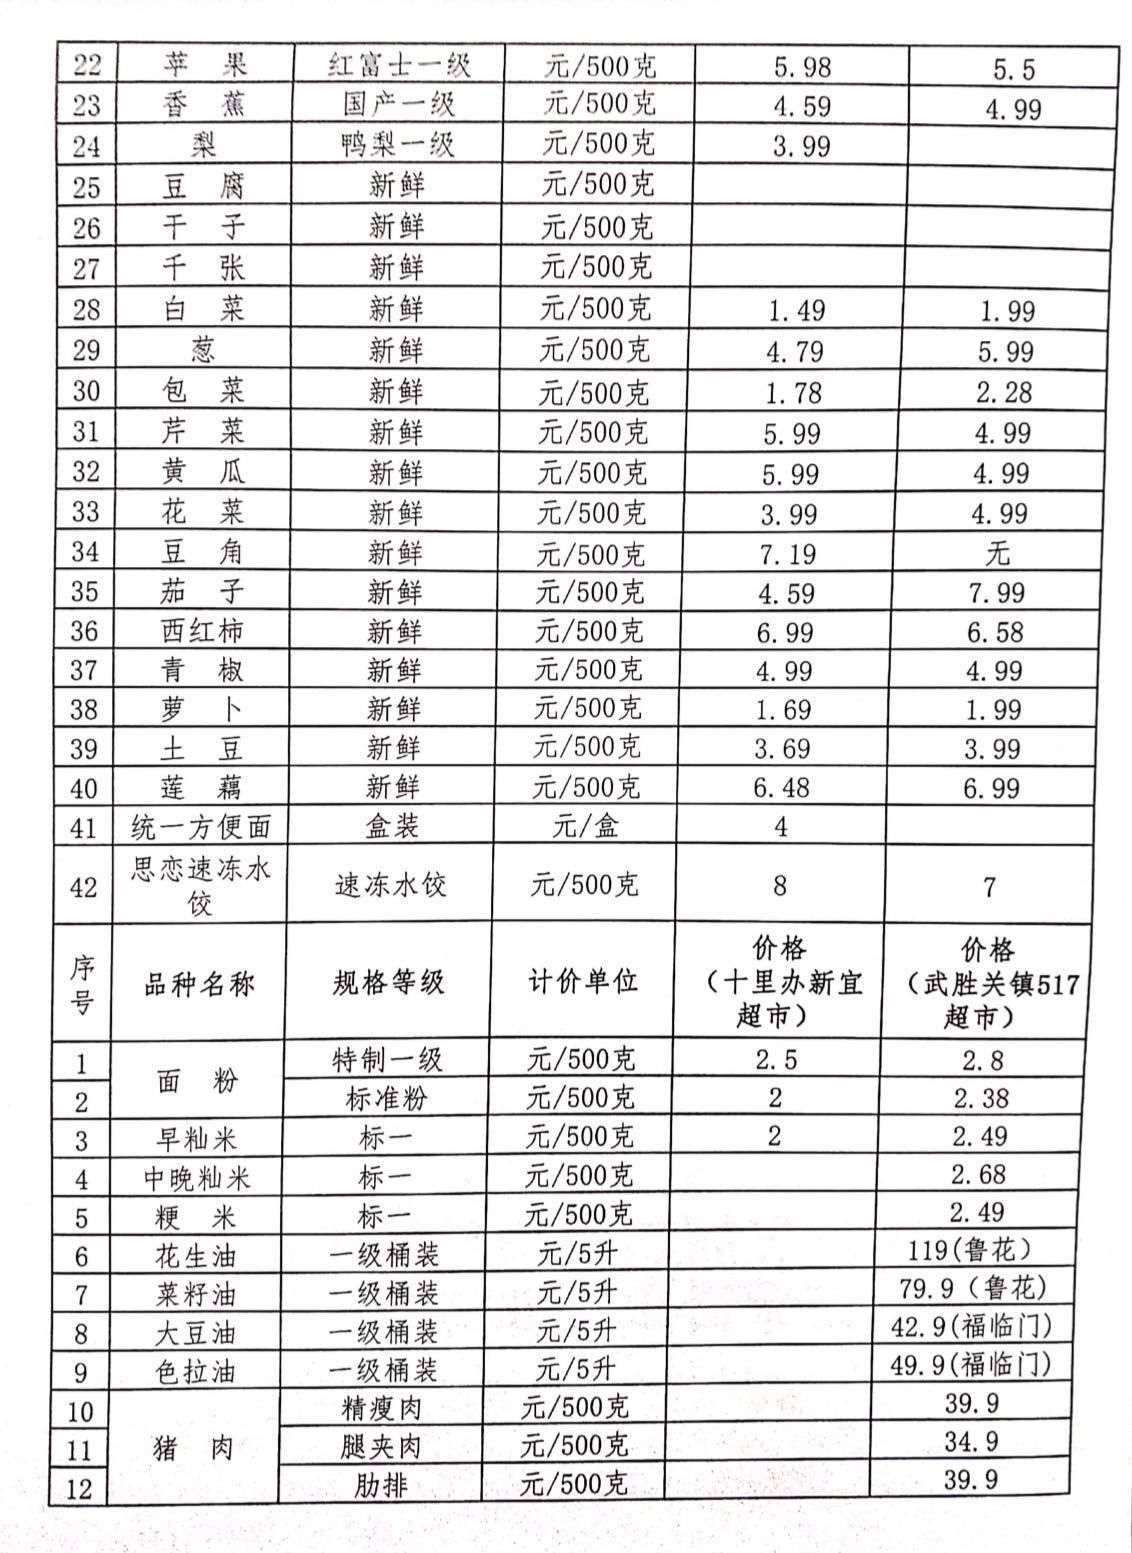 22 苹 果 红富士一级 元/500克 5.98 5.5
23 香 蕉 国产一级 元/500克 4.59 4.99
24 梨 鸭梨一级 元/500克 3.99
25 豆 腐 新鲜 元/500克
26 干 子 新鲜 元/500克
27 千 张 新鲜 元/500克
28 白 菜 新鲜 元/500克 1.49 1.99
29 葱 新鲜 元/500克 4.79 5.99
30 包 菜 新鲜 元/500克 1.78 2.28
31 芹 菜 新鲜 元/500克 5.99 4.99
32 黄 瓜 新鲜 元/500克 5.99 4.99
33 花 菜 新鲜 元/500克 3.99 4.99
34 豆 角 新鲜 元/500克 7.19 无
35 茄 子 新鲜 元/500克 4.59 7.99
36 西红柿 新鲜 元/500克 6.99 6.58
37 青 椒 新鲜 元/500克 4.99 4.99
38 萝 卜 新鲜 元/500克 1.69 1.99
39 土 豆 新鲜 元/500克 3.69 3.99
40 莲 藕 新鲜 元/500克 6.48 6.99
41 统一方便面 盒装 元/盒 4
42 思恋速冻水
饺 速冻水饺 元/500克 8 7
序
号 品种名称 规格等级 计价单位 价格
（十里办新宜
超市） 价格
（武胜关镇517
超市）
1 面 粉 特制一级 元/500克 2.5 2.8
2 标准粉 元/500克 2 2.38
3 早籼米 标一 元/500克 2 2.49
4 中晚籼米 标一 元/500克 2.68
5 粳 米 标一 元/500克 2.49
6 花生油 一级桶装 元/5升 119(鲁花）
7 菜籽油 一级桶装 元/5升 79.9（鲁花)
8 大豆油 一级桶装 元/5升 42.9(福临门)
9 色拉油 一级桶装 元/5升 49.9(福临门)
10 猪 肉 精瘦肉 元/500克 39.9
11 腿夹肉 元/500克 34.9
12 肋排 元/500克 39.9